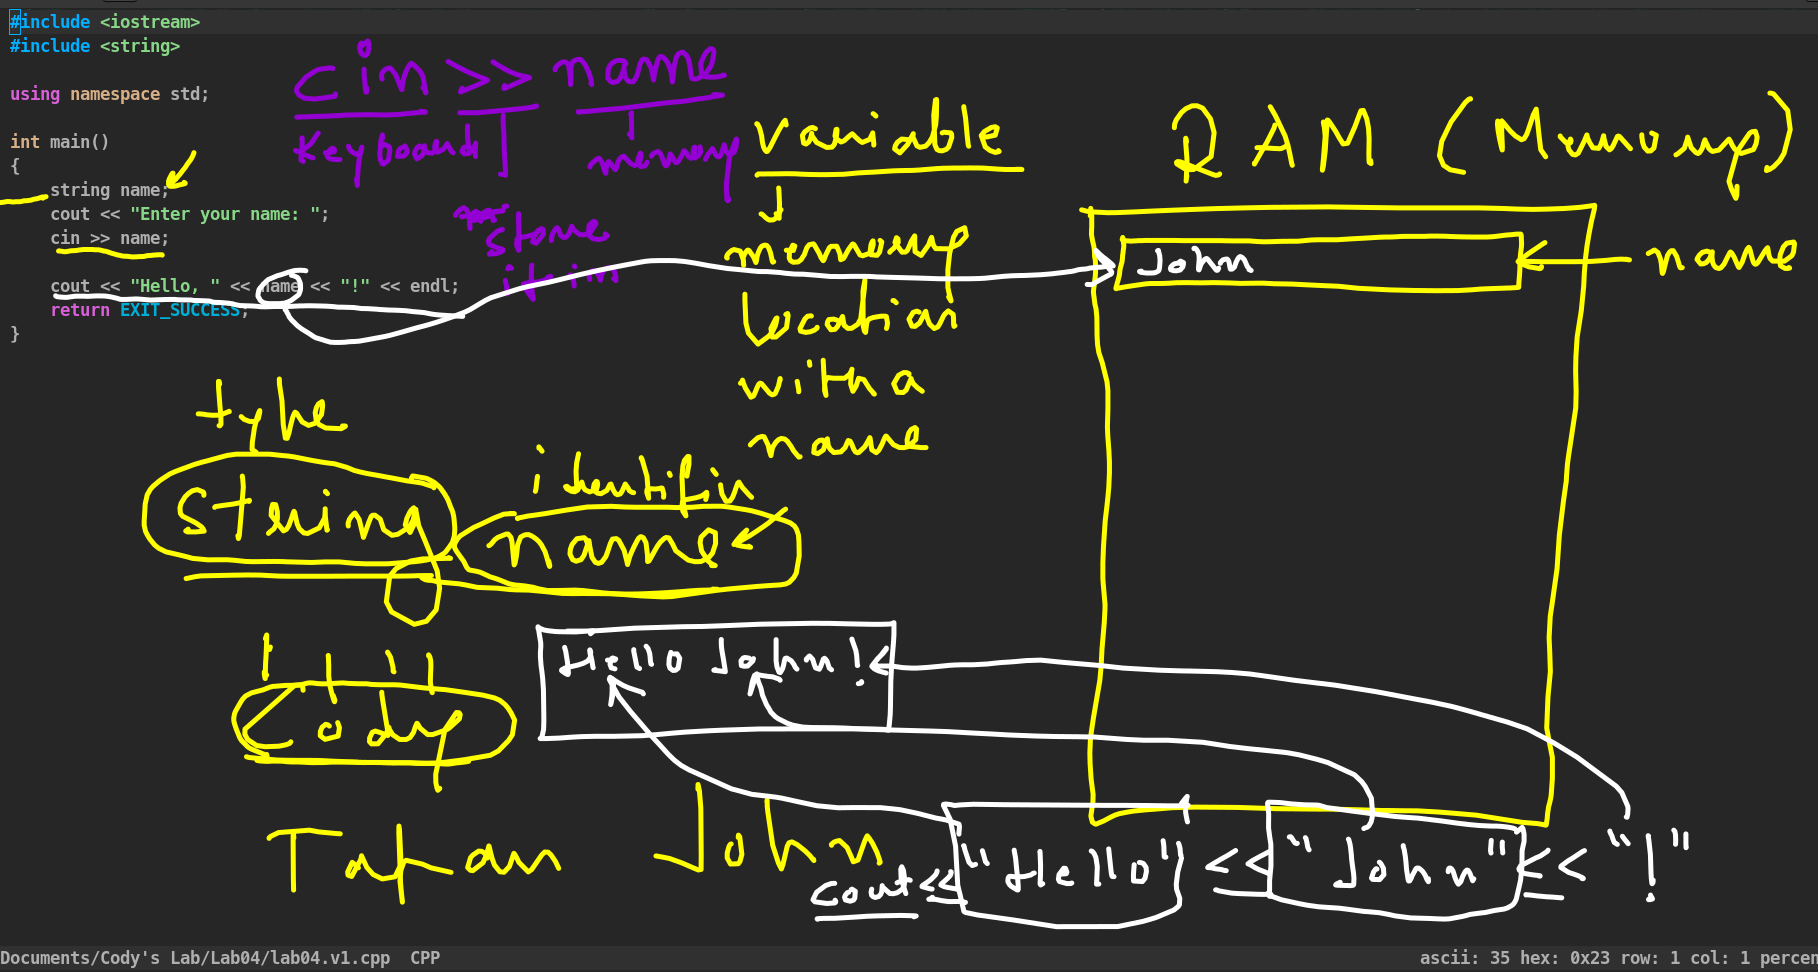 #include <iostream>
#include <string>
using namespace std;
int main()
{
string name;
cout << "Enter your name: ";
cin >> name;
cout << "Hello, " << name << "!" << endl;
return EXIT_SUCCESS;
}
cin >> name
Keyboard
memory
store
variable
memory
location
with a
name
RAM (Memory)
John
name
type
string
identifier
name
Cody
Tapan
John
Hello John!
cout << "Hello" << "John" << "!"
Documents/Cody's Lab/Lab04/lab04.v1.cpp CPP
ascii: 35 hex: 0x23 row: 1 col: 1 percen